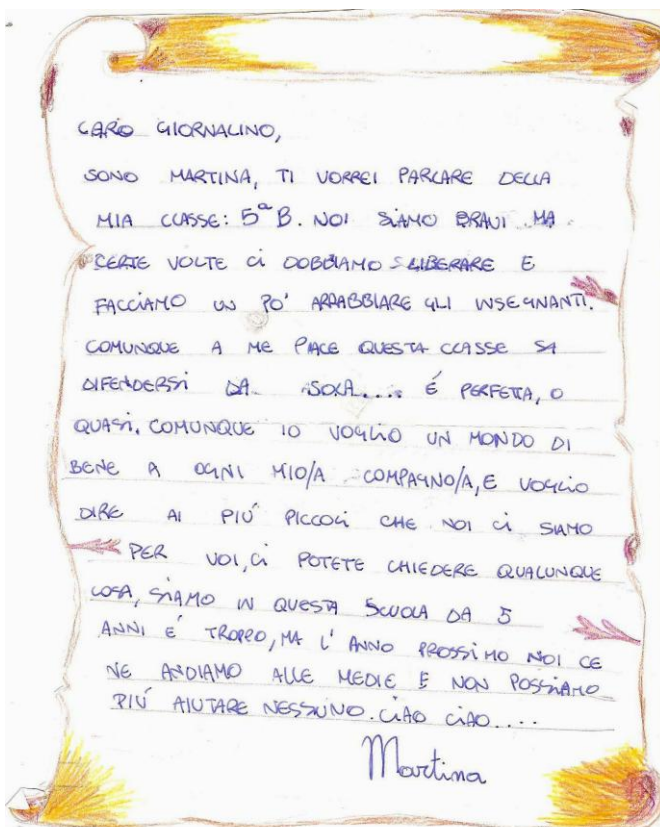 CARO GIORNALINO,
SONO MARTINA, TI VORREI PARLARE DELLA
MIA CLASSE: 5ª B. NOI SIAMO BRAVI MA
CERTE VOLTE CI DOBBIAMO LIBERARE E
FACCIAMO UN PO' ARRABBIARE GLI INSEGNANTI.
COMUNQUE A ME PIACE QUESTA CLASSE SA
DIFENDERSI DA SOLA.... É PERFETTA, O
QUASI. COMUNQUE IO VOGLIO UN MONDO DI
BENE A OGNI MIO/A COMPAGNO/A, E VOGLIO
DIRE AI PIÚ PICCOLI CHE NOI CI SIAMO
PER VOI, CI POTETE CHIEDERE QUALUNQUE
COSA, SIAMO IN QUESTA SCUOLA DA 5
ANNI É TROPPO, MA L'ANNO PROSSIMO NOI CE
NE ANDIAMO ALLE MEDIE E NON POSSIAMO
PIÚ AIUTARE NESSUNO. CIAO CIAO....
Martina